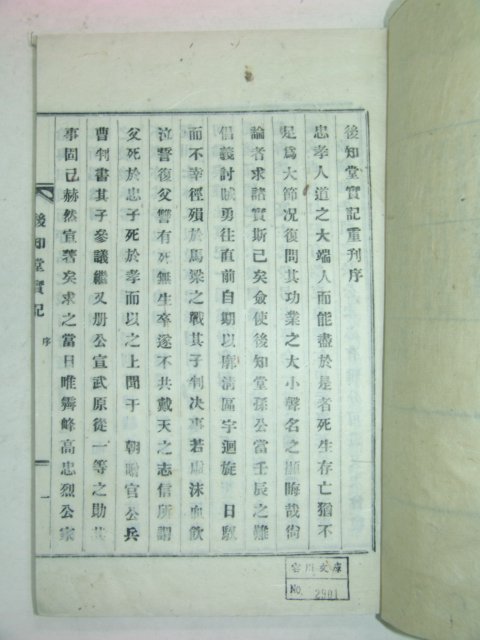 後知堂實記重刊序
忠孝人道之大端人而能盡於是者死生存亡猶不
足爲大節況復問其功業之大小聲名之顯晦哉尙
論者求諸實斯已矣僉使後知堂孫公當壬辰之難
倡義討賊勇往直前自期以廓淸區宇迴旋 日馭
而不幸徑殞於馬梁之戰其子判決事若虛沫血飮
泣誓復父讐有死無生卒遂不共戴天之志信所謂
父死於忠子死於孝而以之上聞于 朝贈官公兵
曹判書其子參議繼又册公宣武原從一等之勛其
事固已赫然宣著矣求之當日唯霽峰高忠烈公家
後知堂實記
序
一
文庫
No. 2981